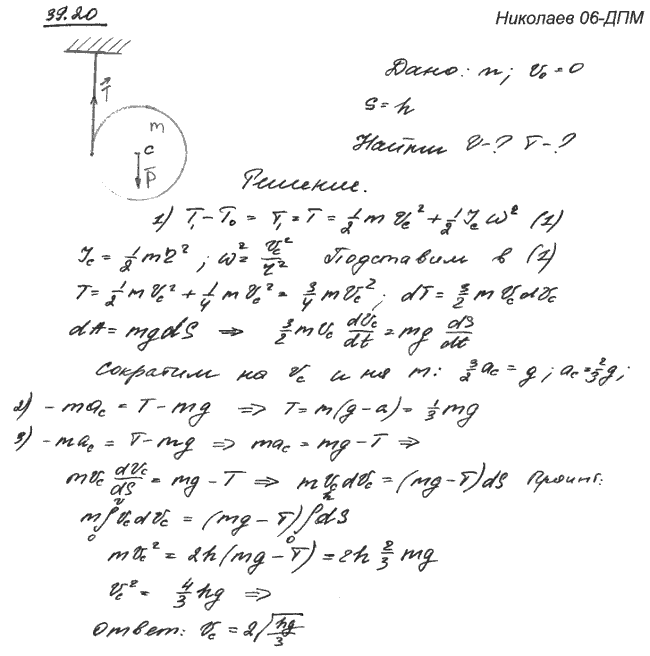 39.20
Николаев 06-ДПМ
Дано: m; V₀=0
S=h
Найти V-? T-?
T
m
c
P̄
Решение.
1) T₁-T₀ = T₁ = T = 1/2 m Vc² + 1/2 Jc ω² (1)
Jc = 1/2 m r²; ω² = Vc²/r² Подставим в (1)
T = 1/2 m Vc² + 1/4 m Vc² = 3/4 m Vc²; dT = 3/2 m Vc dVc
dA = mgdS ⇒ 3/2 m Vc dVc/dt = mg dS/dt
Сократим на Vc и на m: 3/2 ac = g; ac = 2/3 g;
2) -mac = T-mg ⇒ T = m(g-a) = 1/3 mg
3) -mac = T-mg ⇒ mac = mg-T ⇒
mVc dVc/dS = mg-T ⇒ mVc dVc = (mg-T)dS Проинт:
m∫₀ᵛ Vc dVc = (mg-T)∫₀ʰ dS
mVc² = 2h(mg-T) = 2h 2/3 mg
Vc² = 4/3 hg ⇒
Ответ: Vc = 2√(hg/3)